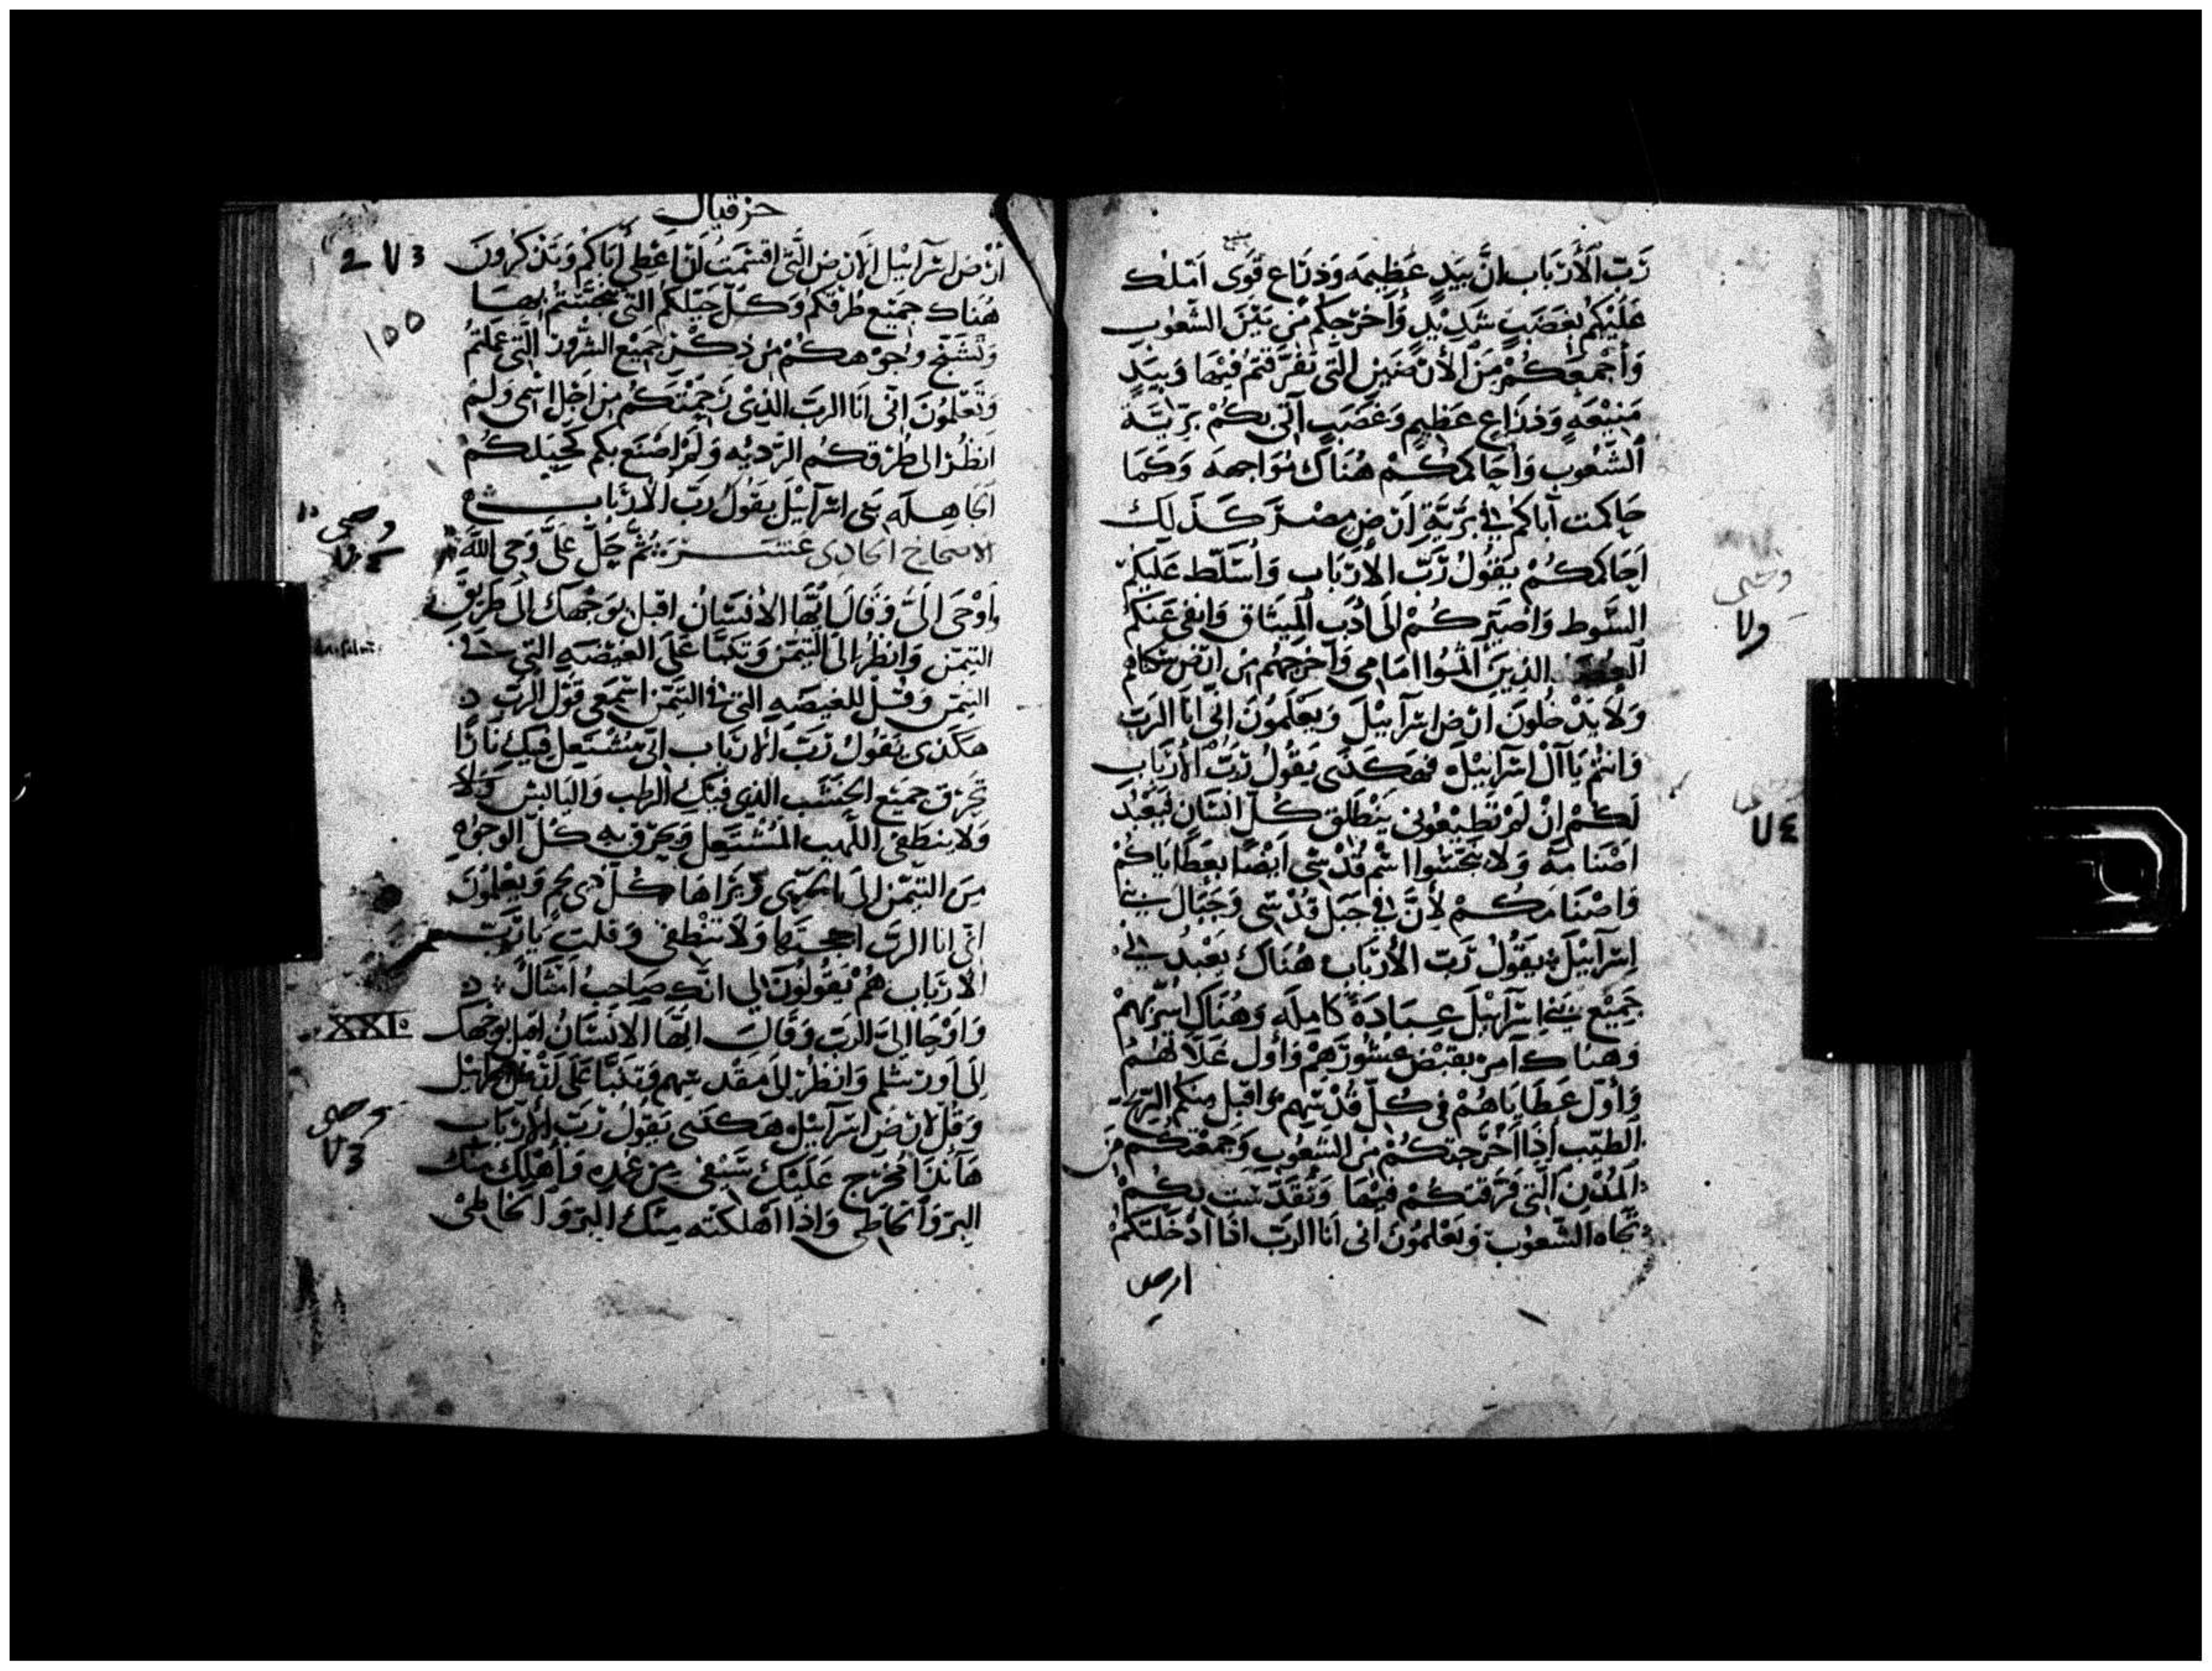 رَبّ الأَرْبَاب انَّ بيَدٍ عَظِيمَه وَذرَاع قَوى امَلك
عَلَيْكُم بغَضَبٍ شَدِيْدٍ وَأخرجكم مِن بَيْن الشعُوب
وَأَجْمَعكُمْ مِنَ الأرضِيْن التى تفرَّقتم فيْهَا وَبيَدٍ
مَنِيْعَهٍ وَذرَاعٍ عَظِيمٍ وَغَضَبٍ آتى بكُمْ برّيَّة
الشّعُوب وَأحَاكمكُمْ هُنَاك مُوَاجهه وَكمَا
حَاكمت آباكم فى بَرِّيَّةِ ارْض مصْر كَذَلِك
احَاكمكُمْ يَقُولُ رَبّ الأرْبَاب وَأسَلّط عَليكم
السَّوط وَاصَيّركُمْ الَى أدَب الميثَاق وَانفى عَنكم
الذينَ امَامى وَآخرجهُم من ارْض سكناهم
وَلَا يَدْخلونَ ارْض اسْرَآيِيْلَ وَيَعْلَمُونَ انّى أنَا الرَبّ
وَانتُم يَا آل اسْرآيِيْلَ فهَكَذَى يَقُولُ رَبّ الأرْبَاب
لَكُمْ انْ لَمْ تطيْعُونى يَنْطَلق كُلّ انْسَانٍ ليَعْبُدَ
اصْنَامه وَلَا تنجّسُوا اسْم قُدْسى ايْضًا بعَطَايَاكُمْ
وَاصْنَامكُمْ لأنَّ فى جَبَل قُدْسى وَجبَال بنى
اسْرَآيِيْلَ يَقُولُ رَبّ الأرْبَاب هُنَاك يَعْبُدنى
جَمِيْع بَنى اسْرَآيِيْلَ عبَادَةً كَامِلَه وَهُنَاك اسَرّ بهمْ
وَهنَاك آمر بقبْض عشُورَهمْ وَأول غَلّاتهُمْ
وَأوّل عَطَايَاهُمْ فى كُلّ قُدْسهم وَاقبل منكم الريح
الطيّب اذَا أخْرَجتكُمْ مِنَ الشعُوب وَجمَعْتكُم مِنَ
المُدُن التى فَرّقتكُمْ فيْهَا وَتقَدّسْت بكُمْ
تجَاه الشعُوب وَتَعْلمُونَ انى أنَا الرَبّ اذَا ادْخَلتكُمْ
ارض
وحى
ولا
٧٤
حزقيال
ارْض اسْرآيِيْل الارْض التى اقسَمتُ ان اعْطى آباكم وَتذكرُونَ
هُنَاك جميْع طرقكم وَكُلّ حيَلكم التى تنجّسْتم بهَا
وَتسَمّج وجُوْهكُمْ مِن ذكْر جَميْع الشرُور التى عَملتُم
وَتَعْلمُونَ انّى انَا الرَبّ الذِى رَحِمْتكُم من اجل اسْمى وَلَمْ
انظُرْ الى طُرْقكُم الرَّديّه وَلَمْ اصْنَع بكم كحيَلكُمْ
الجَاهِلَه بَنى اسْرآيِيْلَ يَقُولُ رَبّ الأرْبَاب
الاصحاح الحادى عَشَرَ ثُمَّ حَلَّ عَلىَّ وَحى الله
وَاوْحَى الَىَّ وَقَالَ ايُّهَا الأنْسَانُ اقبل بوَجْهَك الَى طريق
التيمّن وَانظُر الَى التيمّن وَتَنبَّا عَلَى الغيْضَه التى فى
التيمّن وَقُلْ للغيضَه التى فى التيمّن اسْمَعى قَوْل الرَبّ
هكَذى يَقُولُ رَبّ الأرْبَاب انّى مُشْتعِل فيكِ نَارًا
تحَرْق جَميْع الخشَب الذى فيْكِ الرطب وَاليَابس وَلَا
وَلَا ينطَفى اللَّهيب المُشْتعِل وَيحَرّق به كُلّ الوجُوْه
مِنَ التيمّن الى الجربى وَيَرَاهَا كُلّ ذى لحم وَيعْلَمُونَ
انّى انا الرَبّ اججتهَا وَلَا تنْطفى وَقلت يَا رَبّ
الأرْبَاب هُمْ يَقُولُونَ لى انَّك صَاحِبُ امْثَالٍ
وَاوْحَا الَىَّ الرَبّ وَقَالَ ايّهَا الانسَانُ اقبل بوَجهك
الَى أورشلم وَانظُرْ الَى مَقْدسهم وَتَنَبَّا عَلَى ارْض اسْرآيِيْل
وَقُل لارْض اسْرآيِيْل هكَذى يَقُولُ رَبّ الأرْبَاب
هَآنذَا مُخرج عَلَيْك سَيْفى مِن غمْده وَأهْلك منك
البرّ وَالخَاطى وَاذَا اهْلكته منك البرّ وَالخَاطى
2 ٧3
١٥٥
وحى
XXI.
وحى
٧3